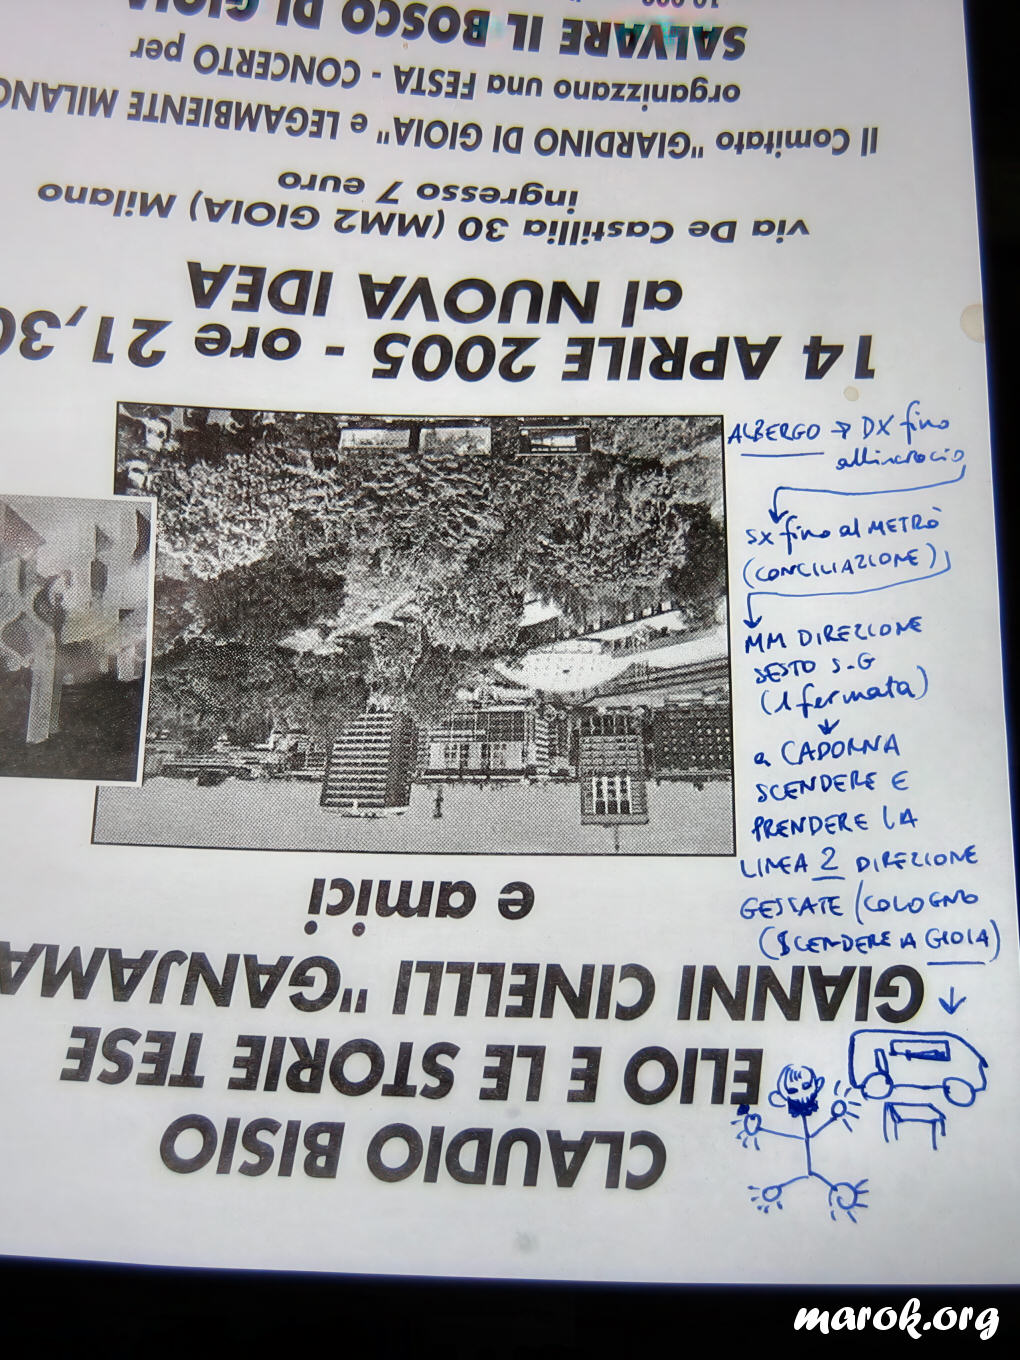 CLAUDIO BISIO
ELIO E LE STORIE TESE
GIANNI CINELLI "GANJAMA
e amici
14 APRILE 2005 - ore 21,30
al NUOVA IDEA
via De Castillia 30 (MM2 GIOIA) Milano
ingresso 7 euro
Il Comitato "GIARDINO DI GIOIA" e LEGAMBIENTE MILANO
organizzano una FESTA - CONCERTO per
SALVARE IL BOSCO DI GIOIA
ALBERGO → DX fino
all'incrocio
SX fino al METRÒ
(CONCILIAZIONE)
MM DIREZIONE
SESTO S.G
(1 fermata)
a CADORNA
SCENDERE E
PRENDERE LA
LINEA 2 DIREZIONE
GESSATE/COLOGNO
(SCENDERE A GIOIA)
marok.org